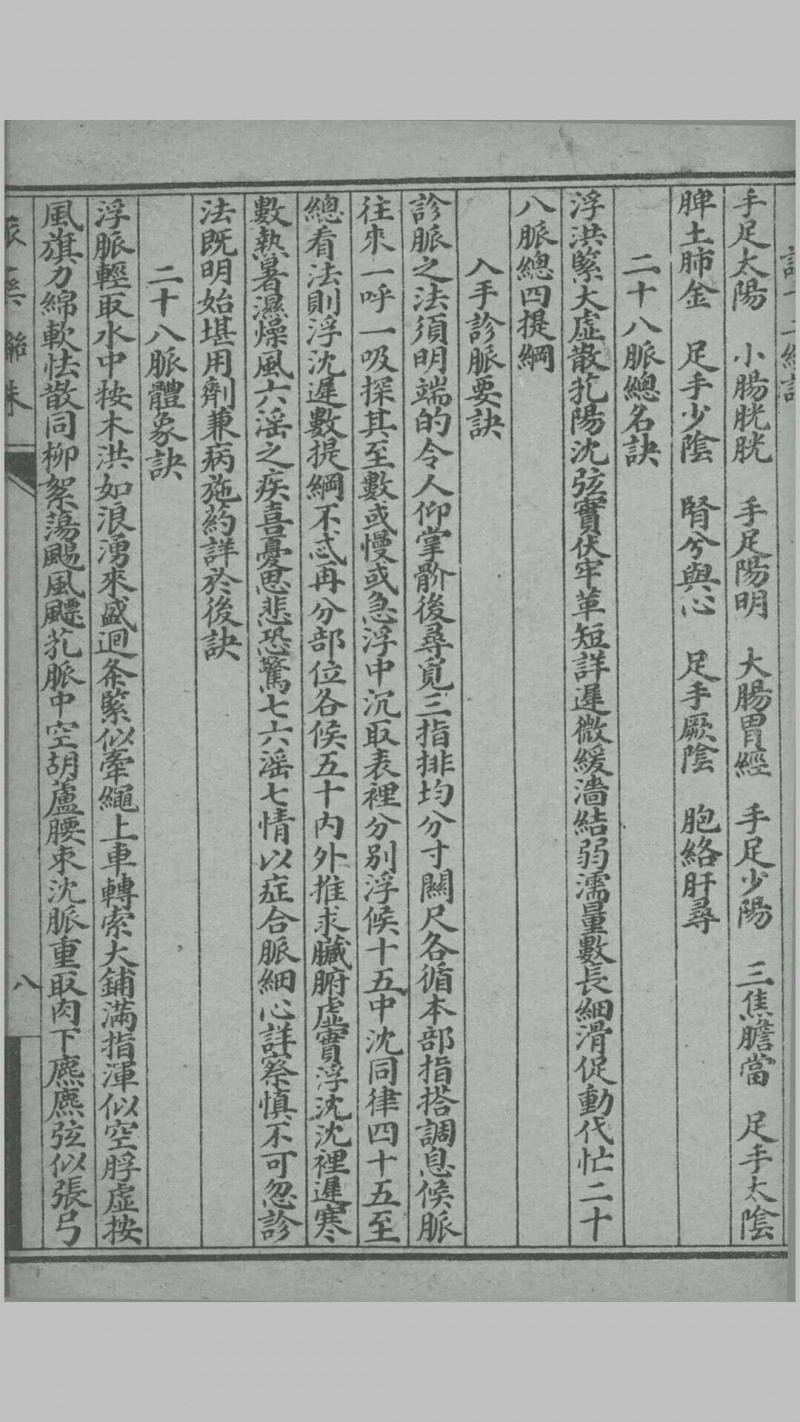 手足太陽　小腸胱胱　手足陽明　大腸胃經　手足少陽　三焦膽當　足手太陰
脾土肺金　足手少陰　腎兮與心　足手厥陰　胞絡肝尋
二十八脈總名訣
浮洪緊大虛散芤陽沈弦實伏牢革短詳遲微緩濇結弱濡量數長細滑促動代忙二十
八脈總四提綱
入手診脈要訣
診脈之法須明端的令人仰掌骱後尋覓三指排均分寸關尺各循本部指搭調息候脈
往來一呼一吸探其至數或慢或急浮中沉取表裡分別浮候十五中沈同律四十五至
總看法則浮沈遲數提綱不忒再分部位各候五十內外推求臟腑虛實浮沈沈裡遲寒
數熱暑濕燥風六淫之疾喜憂思悲恐驚七六淫七情以症合脈細心詳察慎不可忽診
法既明始堪用劑兼病施葯詳於後訣
二十八脈體象訣
浮脈輕取水中按木洪如浪湧來盛迴条緊似牽繩上車轉索大鋪滿指渾似空脬虛按
風旗力綿軟怯散同柳絮蕩颺風飄芤脈中空胡蘆腰束沈脈重取肉下應應弦似張弓
八